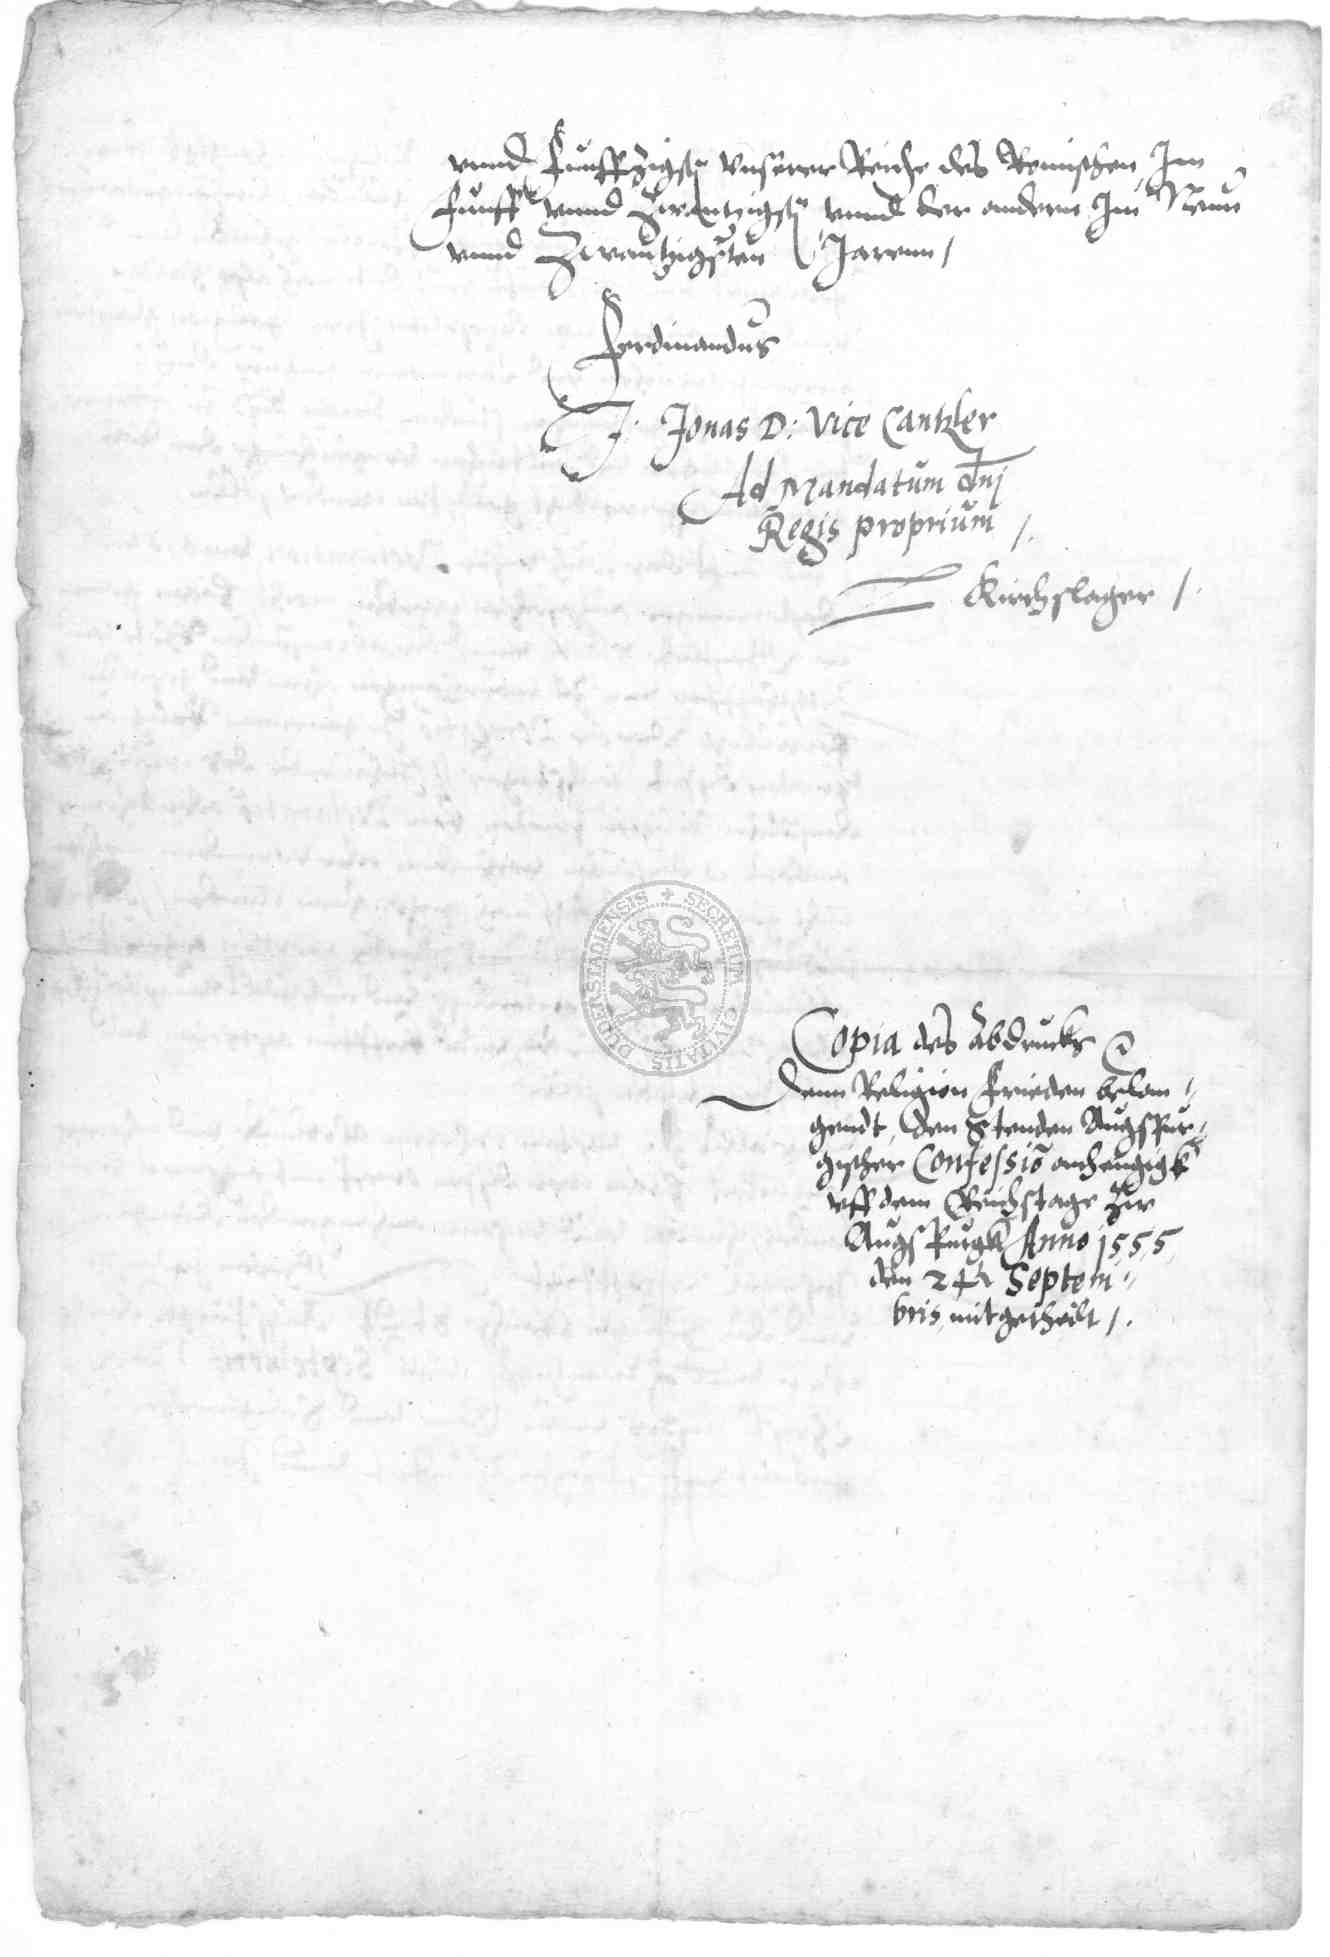 vnnd Funffzigsten Vnserer Reiche des Romischen Im
funff vnnd Zwantzigsten vnnd der andern Im Neun
vnnd Zwantzigsten Jarenn /
Ferdinandus
J. Jonas D: Vice Cantzler
Ad Mandatum dnj
Regis proprium /.
Kirchslager /.
SECRETUM CIVITATIS DUDERSTADIENSIS
Copia des abdrucks
denn Religion Frieden belan⸗
gendt, den Stenden Augspur⸗
gischer Confessiō anhengigk
vff dem Reichstage Zw
Augspurgk Anno 1555
den 24 Septem⸗
bris mitgetheilt /.